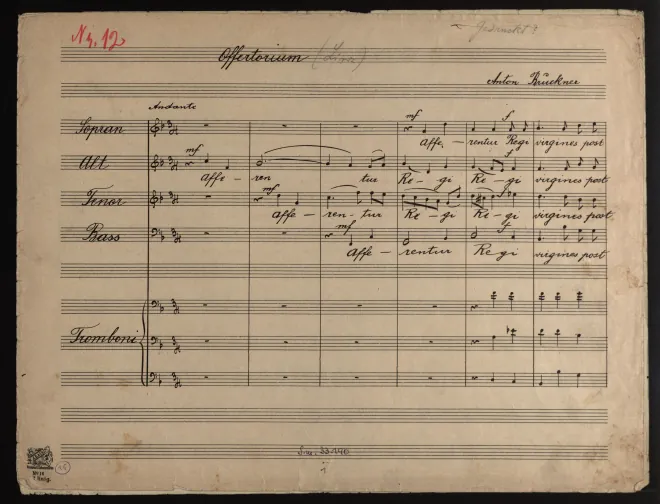 Nr. 12
Gedruckt?
Offertorium (Linz)
Anton Bruckner
Andante
mf f
Sopran
Affe, - rentur Regi virgines post
mf f
Alt
Affe - ren tur Re - gi Re - gi virgines post
mf
Tenor
Affe - ren - tur Re - gi Re - gi virgines post
mf f
Bass
Affe - rentur Regi virgines post
Tromboni